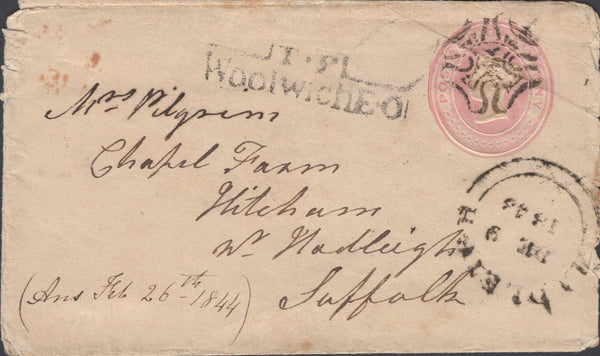 T.P
Woolwich E.O
Mrs Pilgrem
Chapel Farm
Hitcham
Nr Hadleigh
Suffolk
(Ans Feb 26th 1844)
HADLEIGH
DE 9
1843